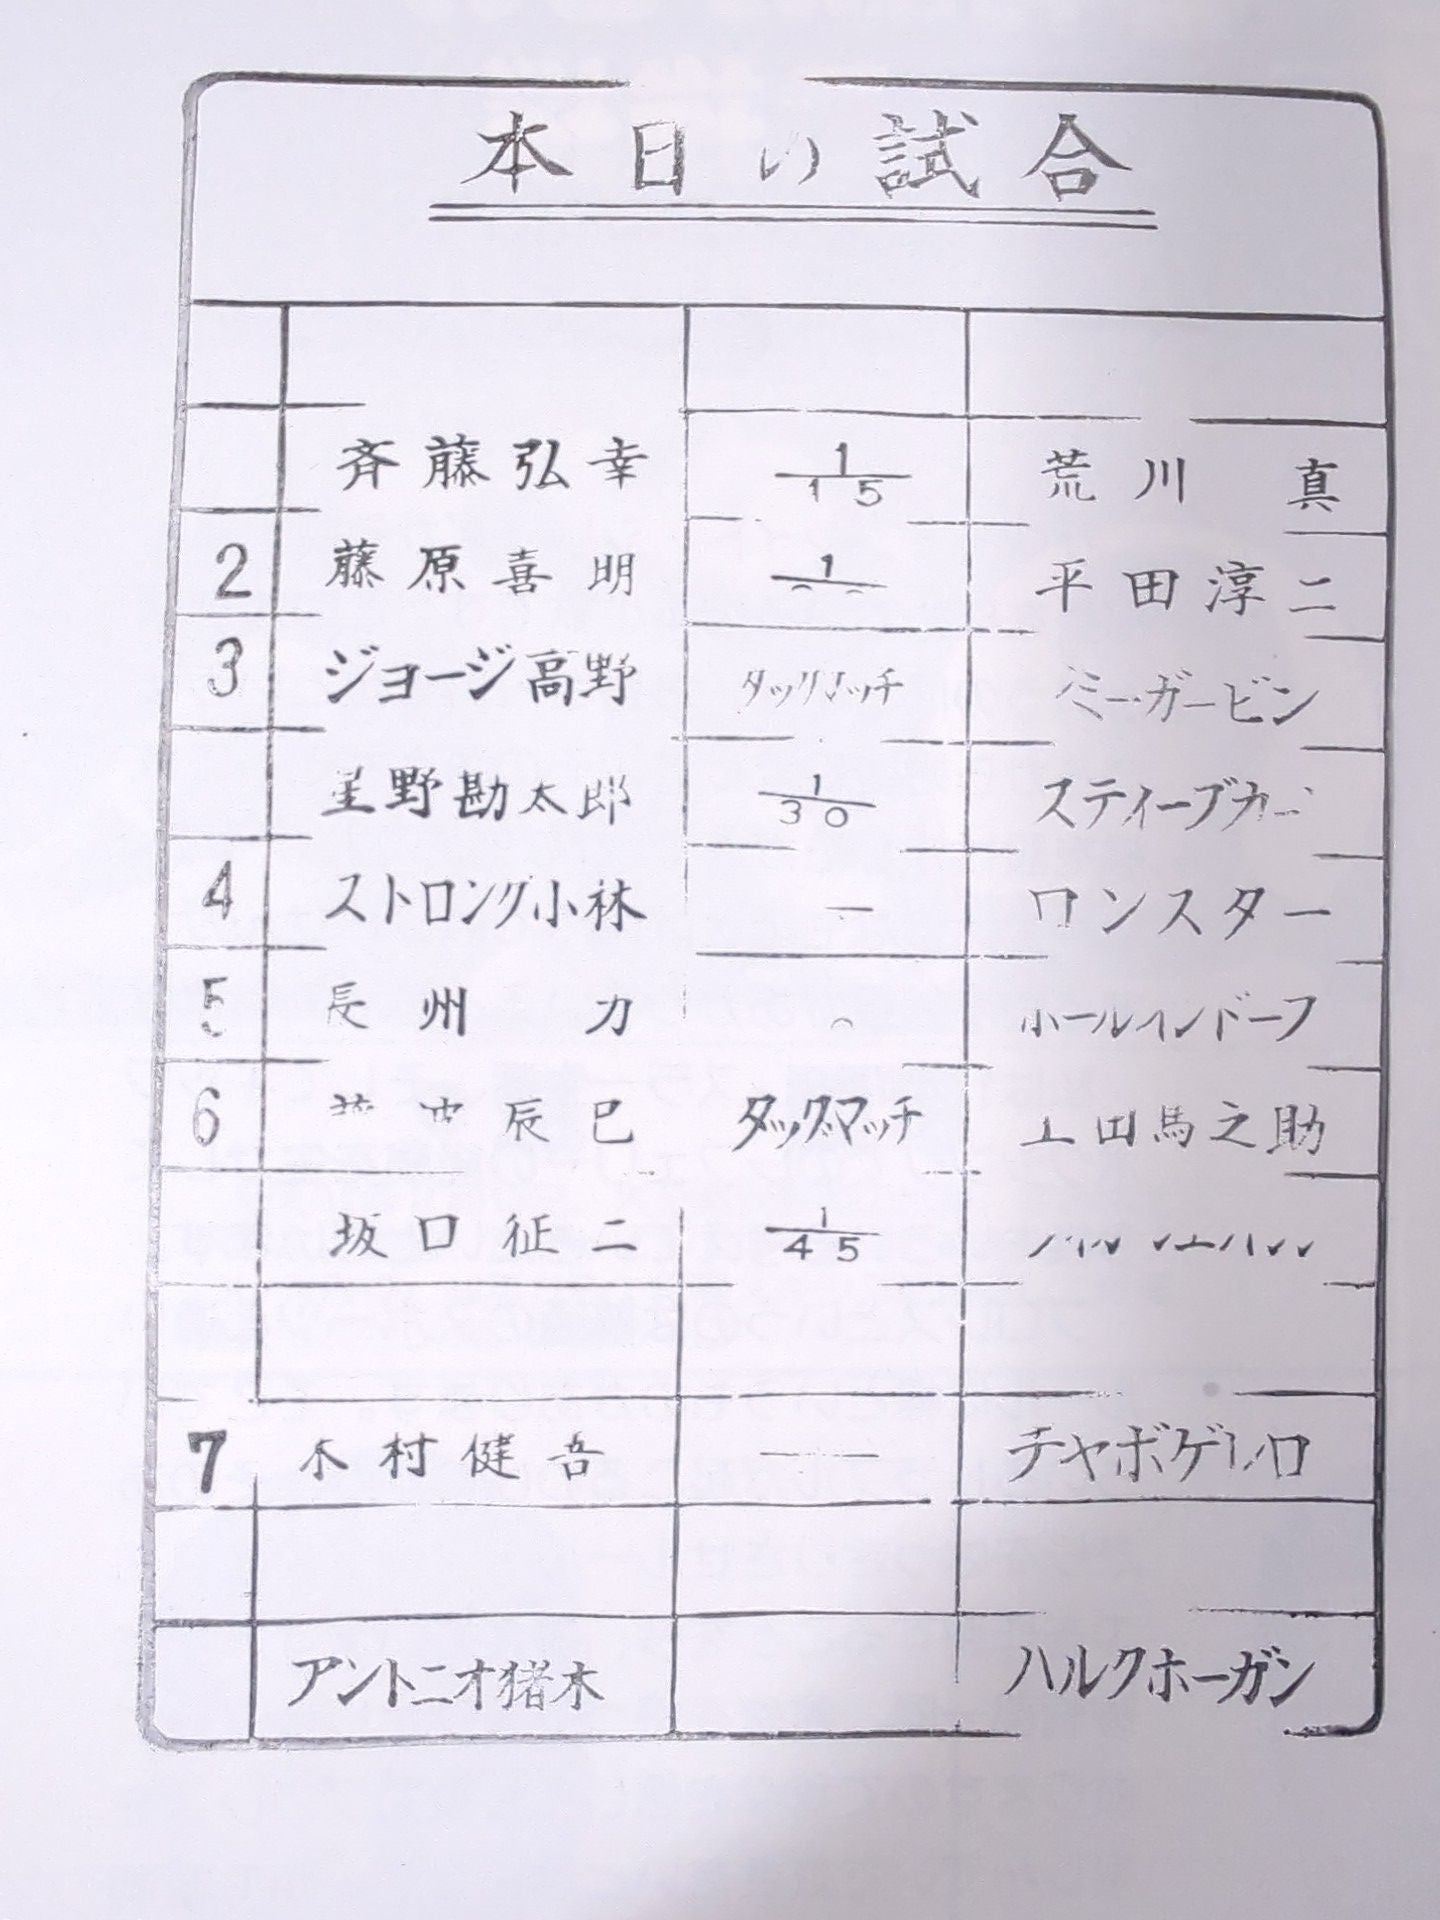 本日の試合
斉藤弘幸 1/15 荒川 真
2 藤原喜明 1 平田淳二
3 ジョージ高野 タッグマッチ ミー・ガービン
星野勘太郎 1/30 スティーブカー
4 ストロング小林 一 ロンスター
5 長州 力 ポールオンドーフ
6 辰巳 タッグマッチ 上田馬之助
坂口征二 1/45
7 木村健吾 チャボゲレロ
アントニオ猪木 ハルクホーガン